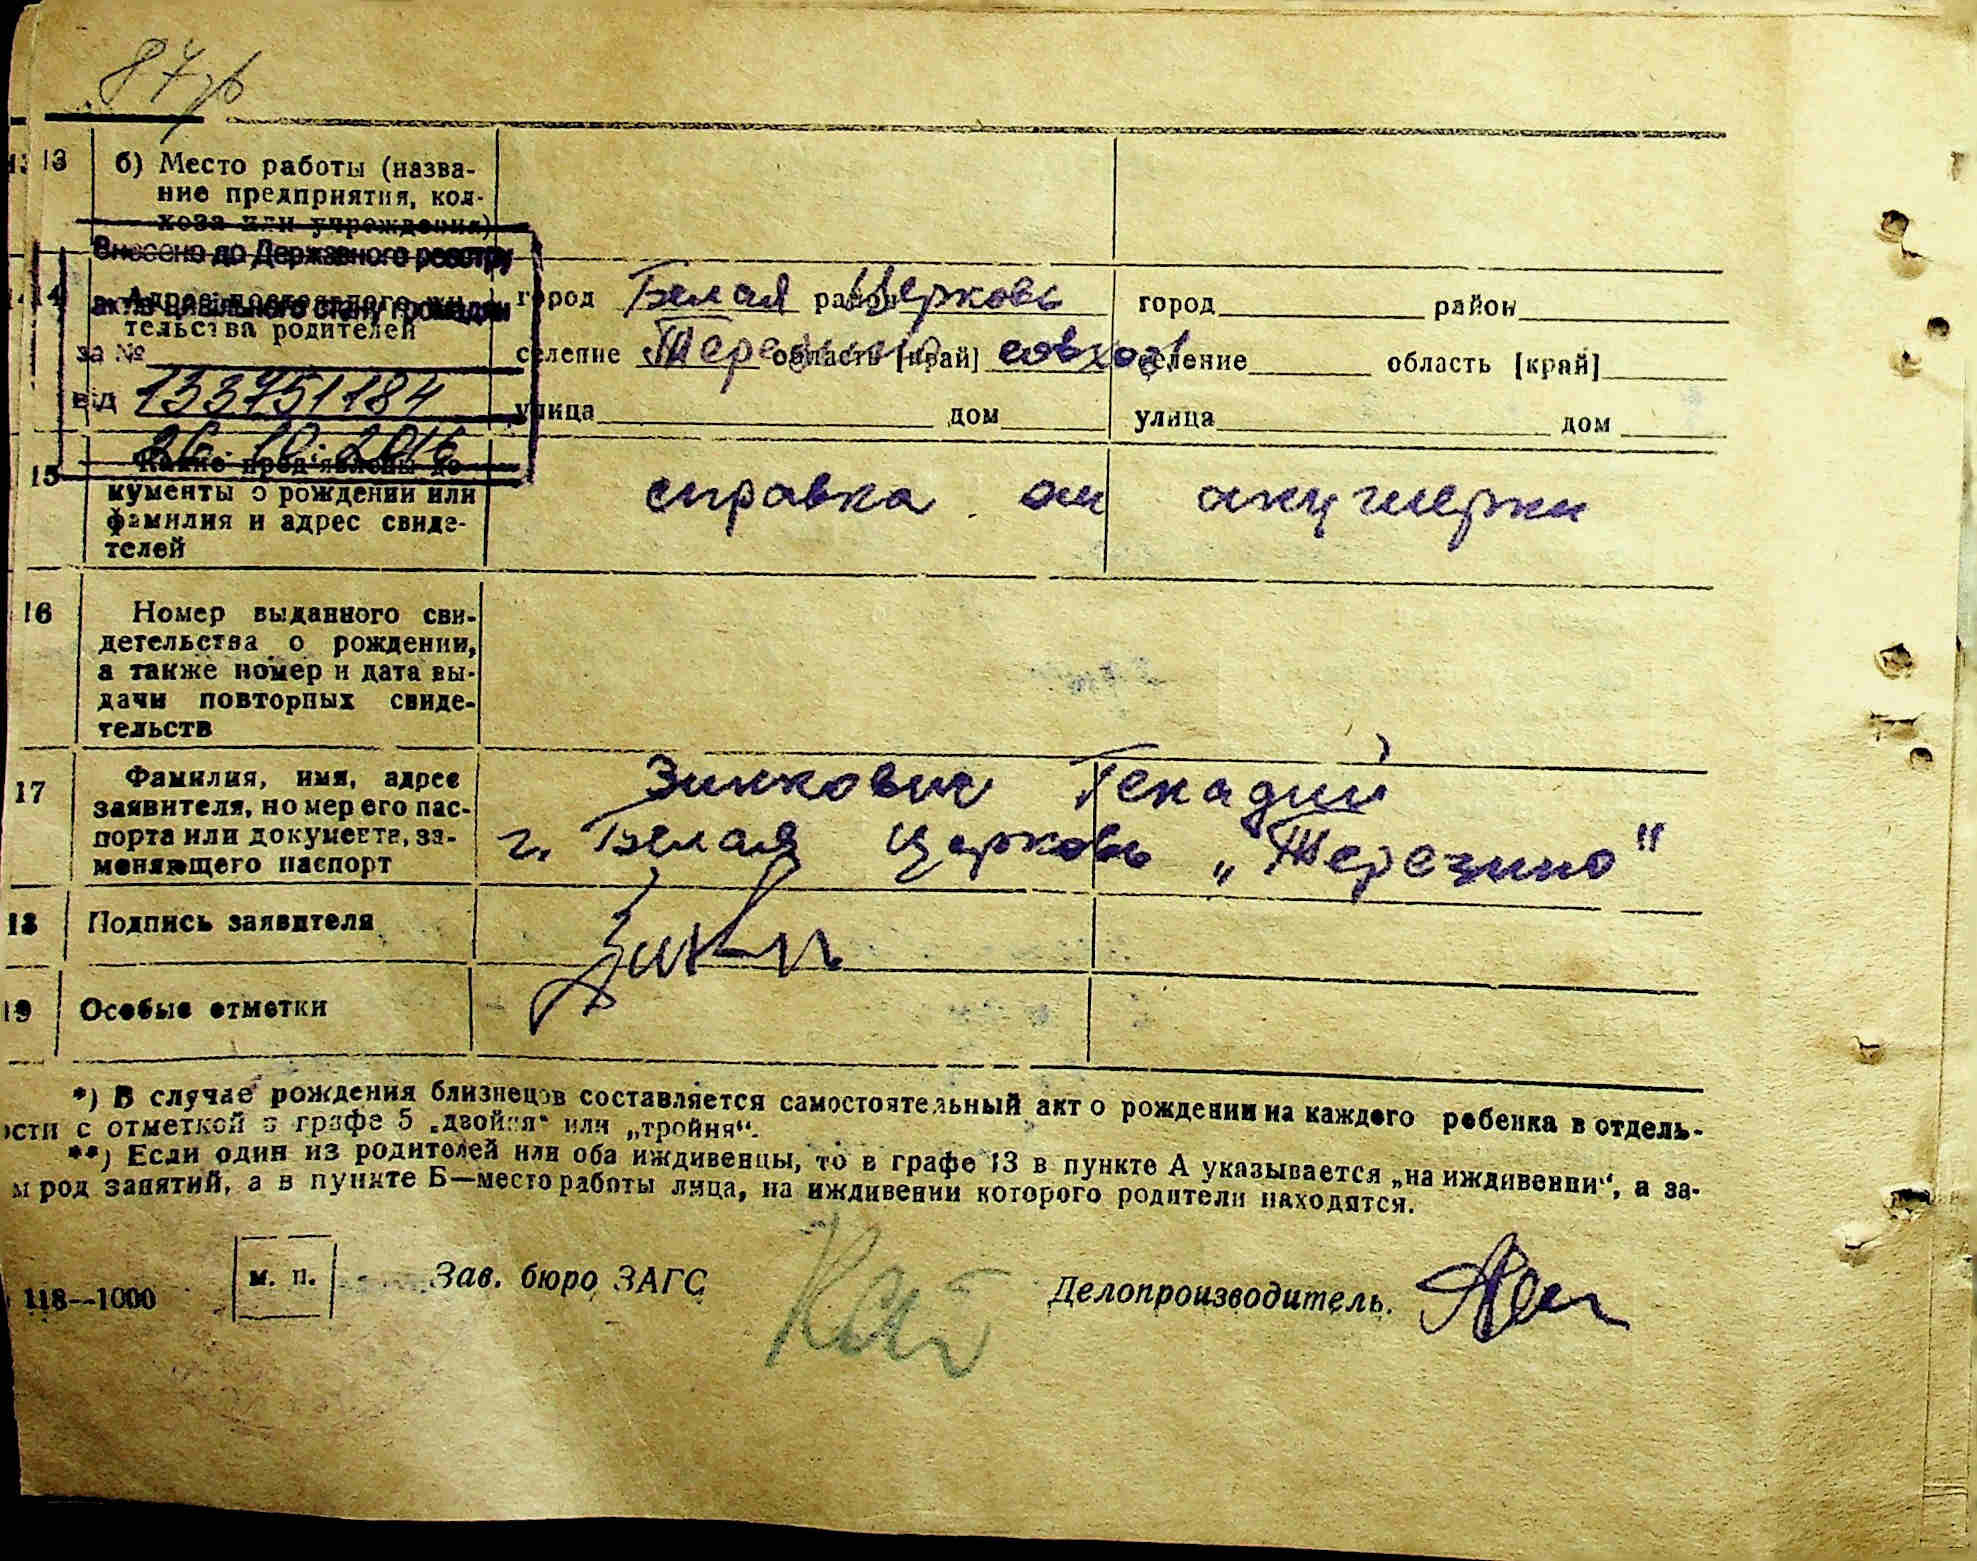 13 б) Место работы (назва-
ние предприятия, кол-
хоза или учреждения)
Внесено до Державного реєстру
актів цивільного стану громадян
за №
133751184
від
26.10.2016
14 Адрес постоянного жи-
тельства родителей
город Белая район Церковь
селение Терезино область [край] совхоз
улица дом
город район
селение область [край]
улица дом
15 Какие пред'явлены до-
кументы о рождении или
фамилия и адрес свиде-
телей
справка от акушерки
16 Номер выданного сви-
детельства о рождении,
а также номер и дата вы-
дачи повторных свиде-
тельств
17 Фамилия, имя, адрес
заявителя, номер его пас-
порта или документа, за-
меняющего паспорт
Зинкович Генадий
г. Белая Церковь „Терезино"
18 Подпись заявителя
19 Особые отметки
*) В случае рождения близнецов составляется самостоятельный акт о рождении на каждого ребенка в отдель-
ости с отметкой в графе 5 „двойня" или „тройня".
**) Если один из родителей или оба иждивенцы, то в графе 13 в пункте А указывается „на иждивении", а за-
м род занятий, а в пункте Б—место работы лица, на иждивении которого родители находятся.
118—1000
м. п.
Зав. бюро ЗАГС
Делопроизводитель.